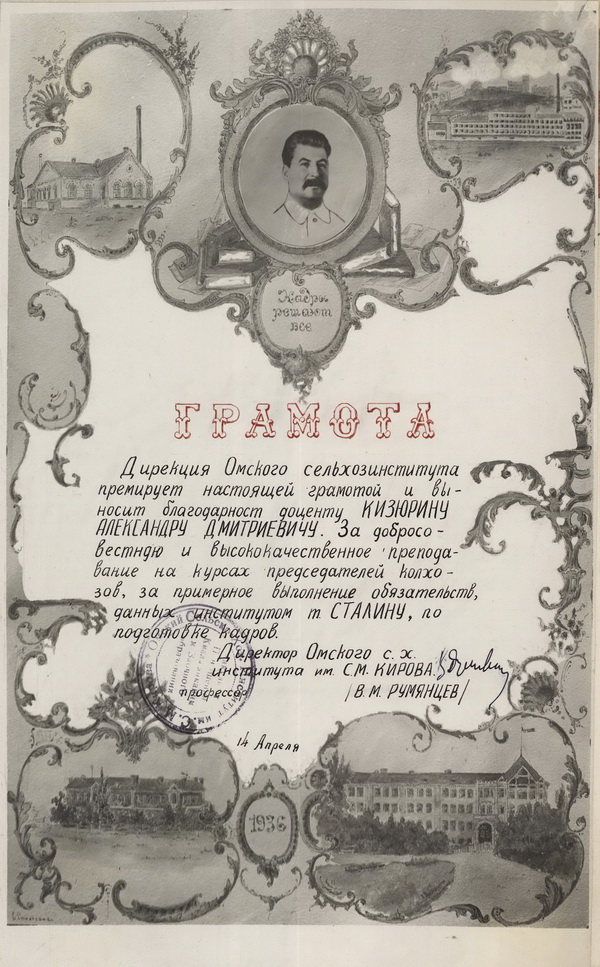 Кадры
решают
все
ГРАМОТА
Дирекция Омского сельхозинститута
премирует настоящей грамотой и вы-
носит благодарност доценту КИЗЮРИНУ
АЛЕКСАНДРУ ДМИТРИЕВИЧУ. За добросо-
вестндю и высококачественное препода-
вание на курсах председателей колхо-
зов, за примерное выполнение обязательств,
данных институтом т. СТАЛИНУ, по
подготовке кадров.
Директор Омского с. х.
института им. С.М. КИРОВА.
профессор /В.М. РУМЯНЦЕВ/
14 Апреля
1936